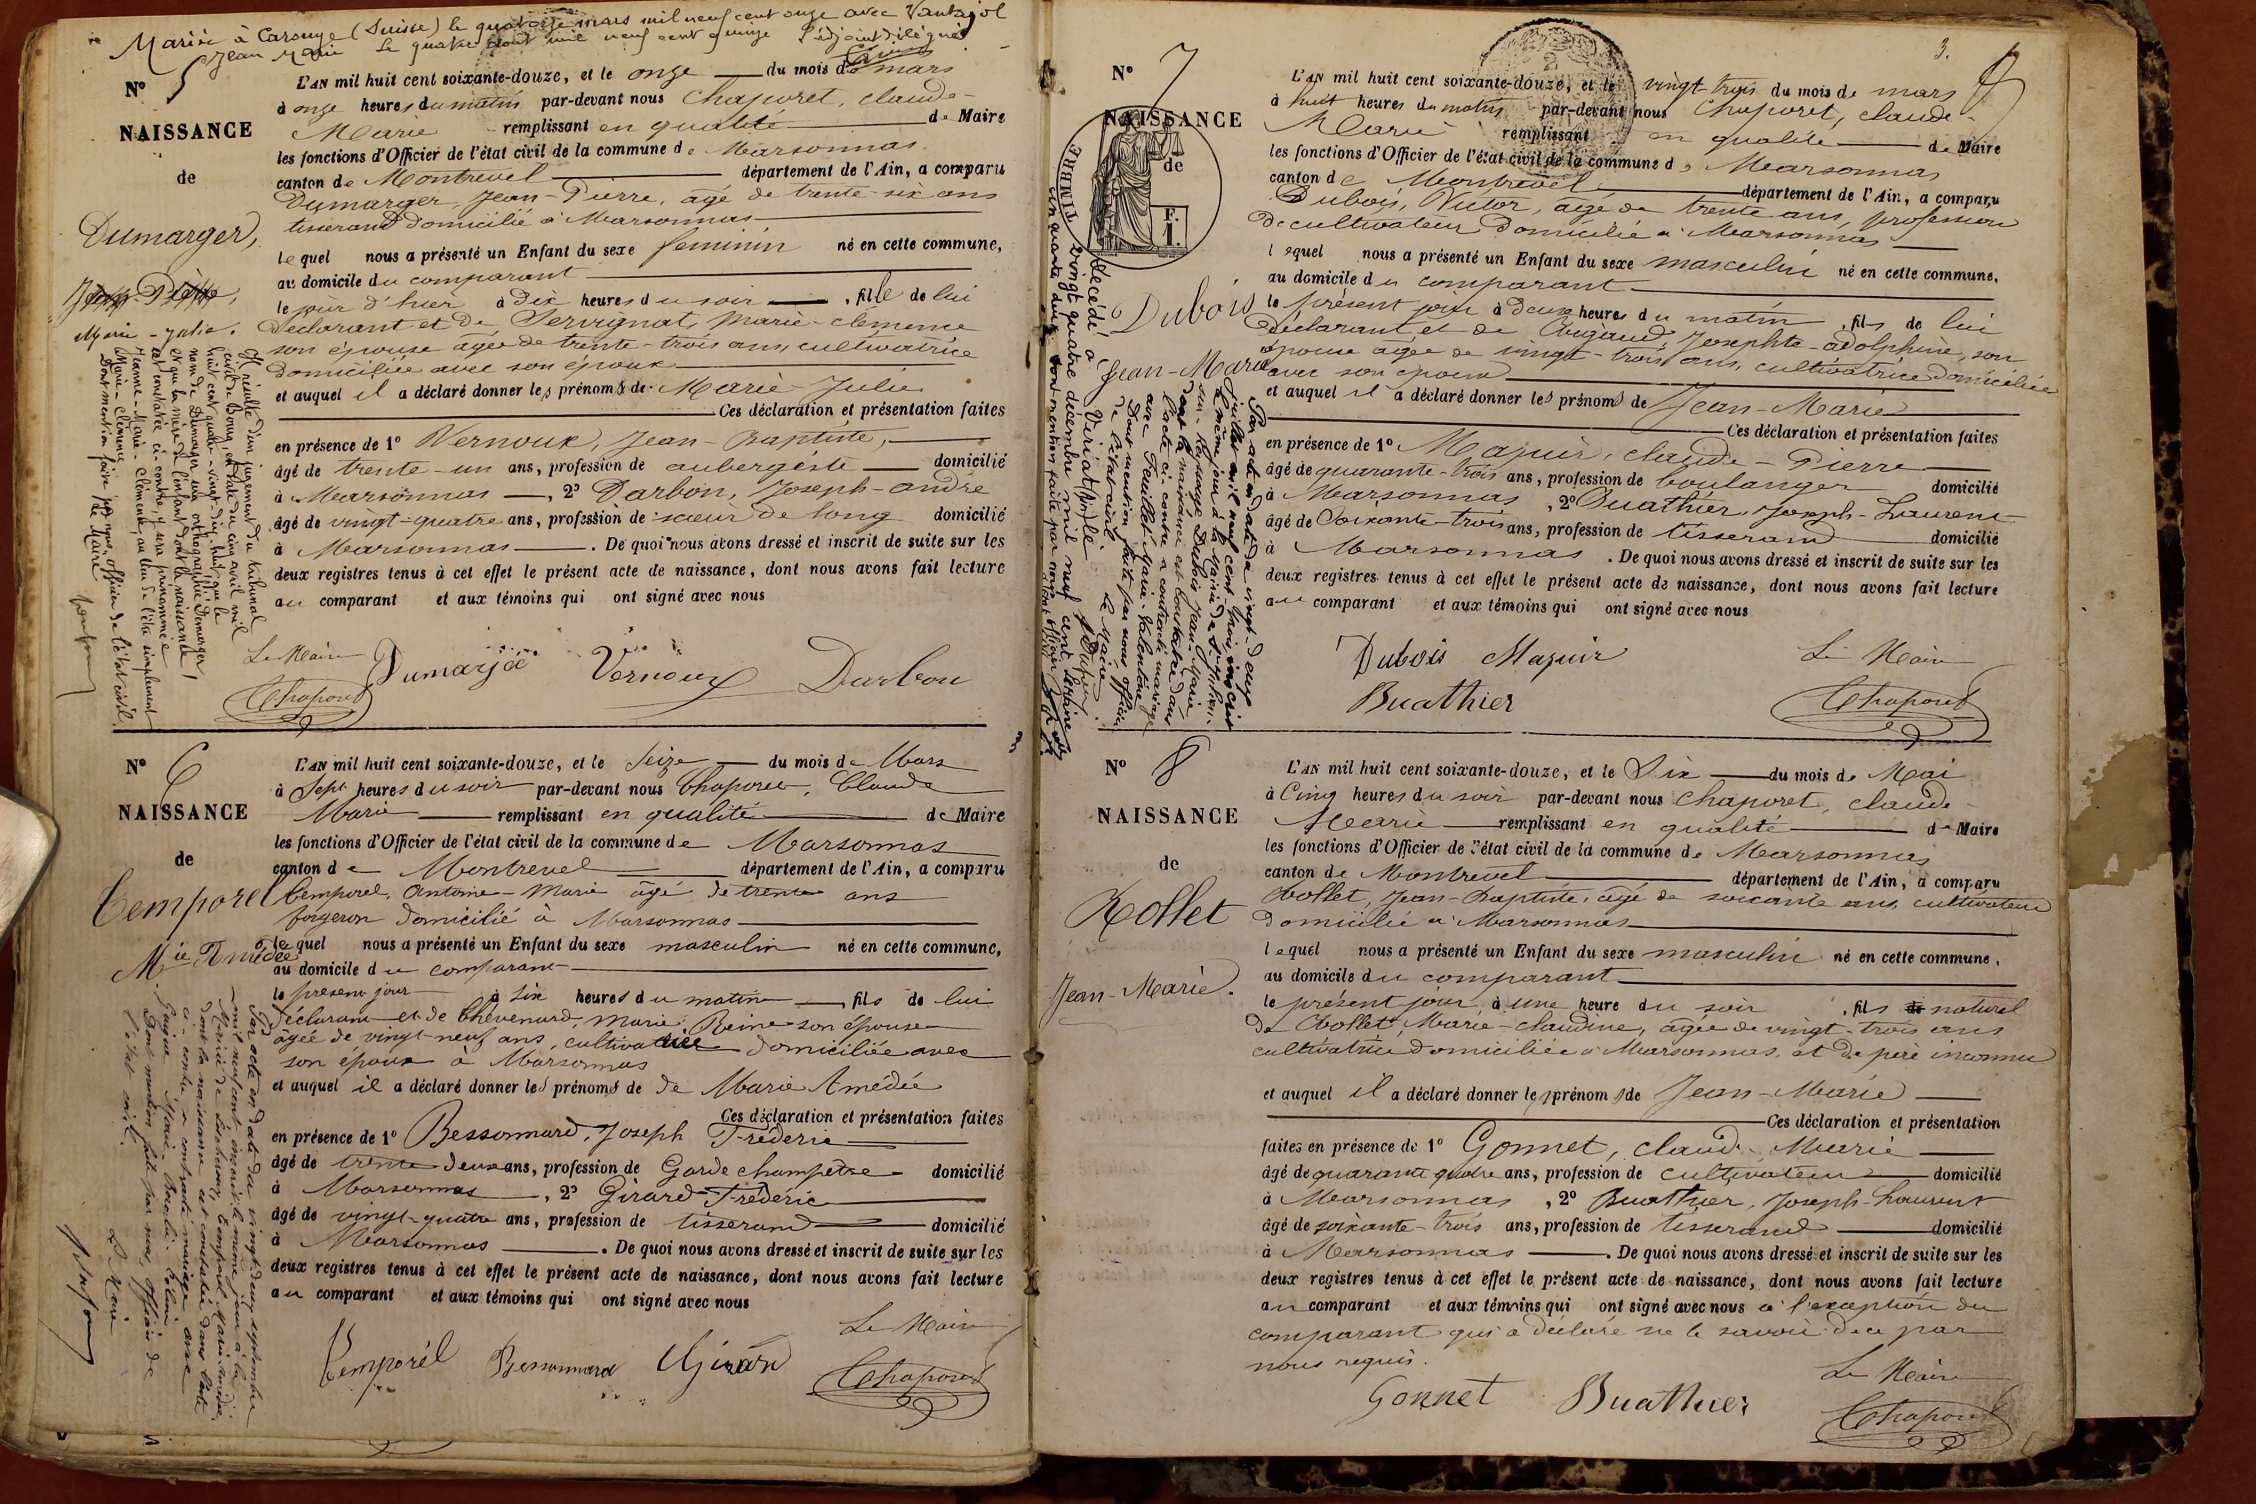 Mariée à Carouge (Suisse) le quatorze mars mil neuf cent onze avec
Jean Marie Le quatre août mil neuf cent quinze L'adjoint délégué
N° 5
NAISSANCE
de
Dumarger,
Jean-Pierre,
Marie-Julie.
L'AN mil huit cent soixante-douze, et le onze du mois de mars
à onze heures du matin par-devant nous Chaporet, claude-
Marie remplissant en qualité de Maire
les fonctions d'Officier de l'état civil de la commune de Marsonnas
canton de Montrevel département de l'Ain, a comparu
Dumarger, Jean-Pierre, agé de trente-six ans
tisserand domicilié à Marsonnas
lequel nous a présenté un Enfant du sexe feminin né en cette commune,
au domicile du comparant
le jour d'hier à dix heures du soir, fille de lui
déclarant et de Servignat, Marie-clémence
son épouse agée de trente-trois ans, cultivatrice
domiciliée avec son époux
et auquel il a déclaré donner les prénoms de Marie-Julie
Ces déclaration et présentation faites
en présence de 1° Vernoux, Jean-Baptiste,
âgé de trente-un ans, profession de aubergiste domicilié
à Marsonnas, 2° Darbon, Joseph-andré
âgé de vingt-quatre ans, profession de scieur de long domicilié
à Marsonnas. De quoi nous avons dressé et inscrit de suite sur les
deux registres tenus à cet effet le présent acte de naissance, dont nous avons fait lecture
au comparant et aux témoins qui ont signé avec nous
Le Maire
Dumarjé Vernoux Darbon
Chaporet
Il résulte d'un jugement du tribunal
civil de Bourg en date du cinq avril mil
huit cent quatre-vingt-dix-huit, que le
nom de Dumarger sera orthographié Demarger
et que la mère de l'enfant dont la naissance
est constatée ci-contre, y sera prénommée
Jeanne-Marie-Clémence, au lieu de l'être simplement
Marie-Clémence
Dont mention faite par nous, officier de l'état civil.
Le Maire
N° 6
NAISSANCE
de
Temporel
Mie Amédée
L'AN mil huit cent soixante-douze, et le Seize du mois de Mars
à Sept heures du soir par-devant nous Chaporet, Claude
Marie remplissant en qualité de Maire
les fonctions d'Officier de l'état civil de la commune de Marsonnas
canton de Montrevel département de l'Ain, a comparu
Temporel, Antoine-Marie âgé de trente ans
forgeron domicilié à Marsonnas
lequel nous a présenté un Enfant du sexe masculin né en cette commune,
au domicile du comparant
le present jour à six heures du matin, fils de lui
déclarant et de Chevenard, Marie Reine son épouse
âgée de vingt neuf ans, cultivatrice domiciliée avec
son époux à Marsonnas
et auquel il a déclaré donner les prénoms de de Marie Amédée
Ces déclaration et présentation faites
en présence de 1° Bessonnard, Joseph Fréderic
âgé de trente deux ans, profession de Garde champêtre domicilié
à Marsonnas, 2° Girard Frédéric
âgé de vingt-quatre ans, profession de tisserand domicilié
à Marsonnas. De quoi nous avons dressé et inscrit de suite sur les
deux registres tenus à cet effet le présent acte de naissance, dont nous avons fait lecture
au comparant et aux témoins qui ont signé avec nous
Le Maire
Temporél Bessonnard Girard
Chaporet
Par acte en date du vingt deux septembre
mil neuf cent, inscrit le même jour à la
Mairie de, Temporel Marie Amédée,
dont la naissance est constatée dans l'acte
ci contre, a contracté mariage avec
Marie
Dont mention faite par nous, officier de
l'état civil.
Le Maire
3.
N° 7
NAISSANCE
de
TIMBRE IMPÉRIAL
F.
1.
Dubois
Jean-Marie
L'AN mil huit cent soixante-douze, et le vingt-trois du mois de mars
à huit heures du matin par-devant nous Chaporet, claude-
Marie remplissant en qualité de Maire
les fonctions d'Officier de l'état civil de la commune de Marsonnas
canton de Montrevel département de l'Ain, a comparu
Dubois, Victor, agé de trente ans, profession
de cultivateur domicilié à Marsonnas
lequel nous a présenté un Enfant du sexe masculin né en cette commune,
au domicile du comparant
le présent jour à deux heures du matin, fils de lui
déclarant et de, Josephte-adolphine, son
épouse agée de vingt-trois ans, cultivatrice domiciliée
avec son époux
et auquel il a déclaré donner les prénoms de Jean-Marie
Ces déclaration et présentation faites
en présence de 1° Mazuir, claude-Pierre
âgé de quarante-trois ans, profession de boulanger domicilié
à Marsonnas, 2° Buathier, Joseph-Laurent
âgé de Soixante-trois ans, profession de tisserand domicilié
à Marsonnas. De quoi nous avons dressé et inscrit de suite sur les
deux registres tenus à cet effet le présent acte de naissance, dont nous avons fait lecture
au comparant et aux témoins qui ont signé avec nous
Dubois Mazuir Le Maire
Buathier Chaporet
Par acte en date du vingt-deux
juillet mil neuf cent trois, inscrit
le même jour à la Mairie de St Julien-
sur-Reyssouze, Dubois Jean-Marie
dont la naissance est constatée dans
l'acte ci-contre a contracté mariage
avec Feuillet Marie-Valentine
Dont mention faite par nous officier
de l'état civil. Le Maire
Décédé à Viriat, le
vingt quatre décembre mil neuf cent
cinquante deux. Dont mention faite par nous
N° 8
NAISSANCE
de
Rollet
Jean-Marie.
L'AN mil huit cent soixante-douze, et le Six du mois de Mai
à Cinq heures du soir par-devant nous Chaporet, claude-
Marie remplissant en qualité de Maire
les fonctions d'Officier de l'état civil de la commune de Marsonnas
canton de Montrevel département de l'Ain, a comparu
Rollet, Jean-Baptiste, agé de soixante ans, cultivateur
domicilié à Marsonnas
lequel nous a présenté un Enfant du sexe masculin né en cette commune,
au domicile du comparant
le présent jour, à une heure du soir, fils de naturel
de Rollet, Marie-claudine, âgée de vingt-trois ans
cultivatrice domiciliée à Marsonnas, et de père inconnu
et auquel il a déclaré donner les prénoms de Jean-Marie
Ces déclaration et présentation
faites en présence de 1° Gonnet, Claude Marie
âgé de quarante quatre ans, profession de cultivateur domicilié
à Marsonnas, 2° Buathier, Joseph-Laurent
âgé de soixante-trois ans, profession de tisserand domicilié
à Marsonnas. De quoi nous avons dressé et inscrit de suite sur les
deux registres tenus à cet effet le présent acte de naissance, dont nous avons fait lecture
au comparant et aux témoins qui ont signé avec nous à l'exception du
comparant qui a déclaré ne le savoir de ce par
nous requis.
Le Maire
Gonnet Buathier Chaporet